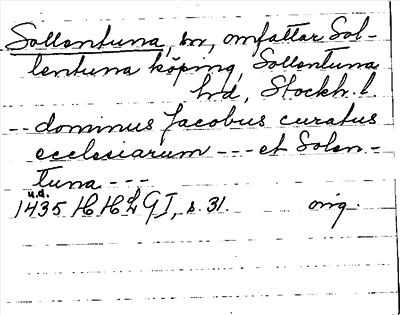 Sollentuna, sn, omfattar Sol-
lentuna köping, Sollentuna
hd, Stockh. l.
-- dominus Jacobus curatus
ecclesiarum --- et Solen-
tuna ---
u.d.
1435 HHLGI, s. 31. orig.